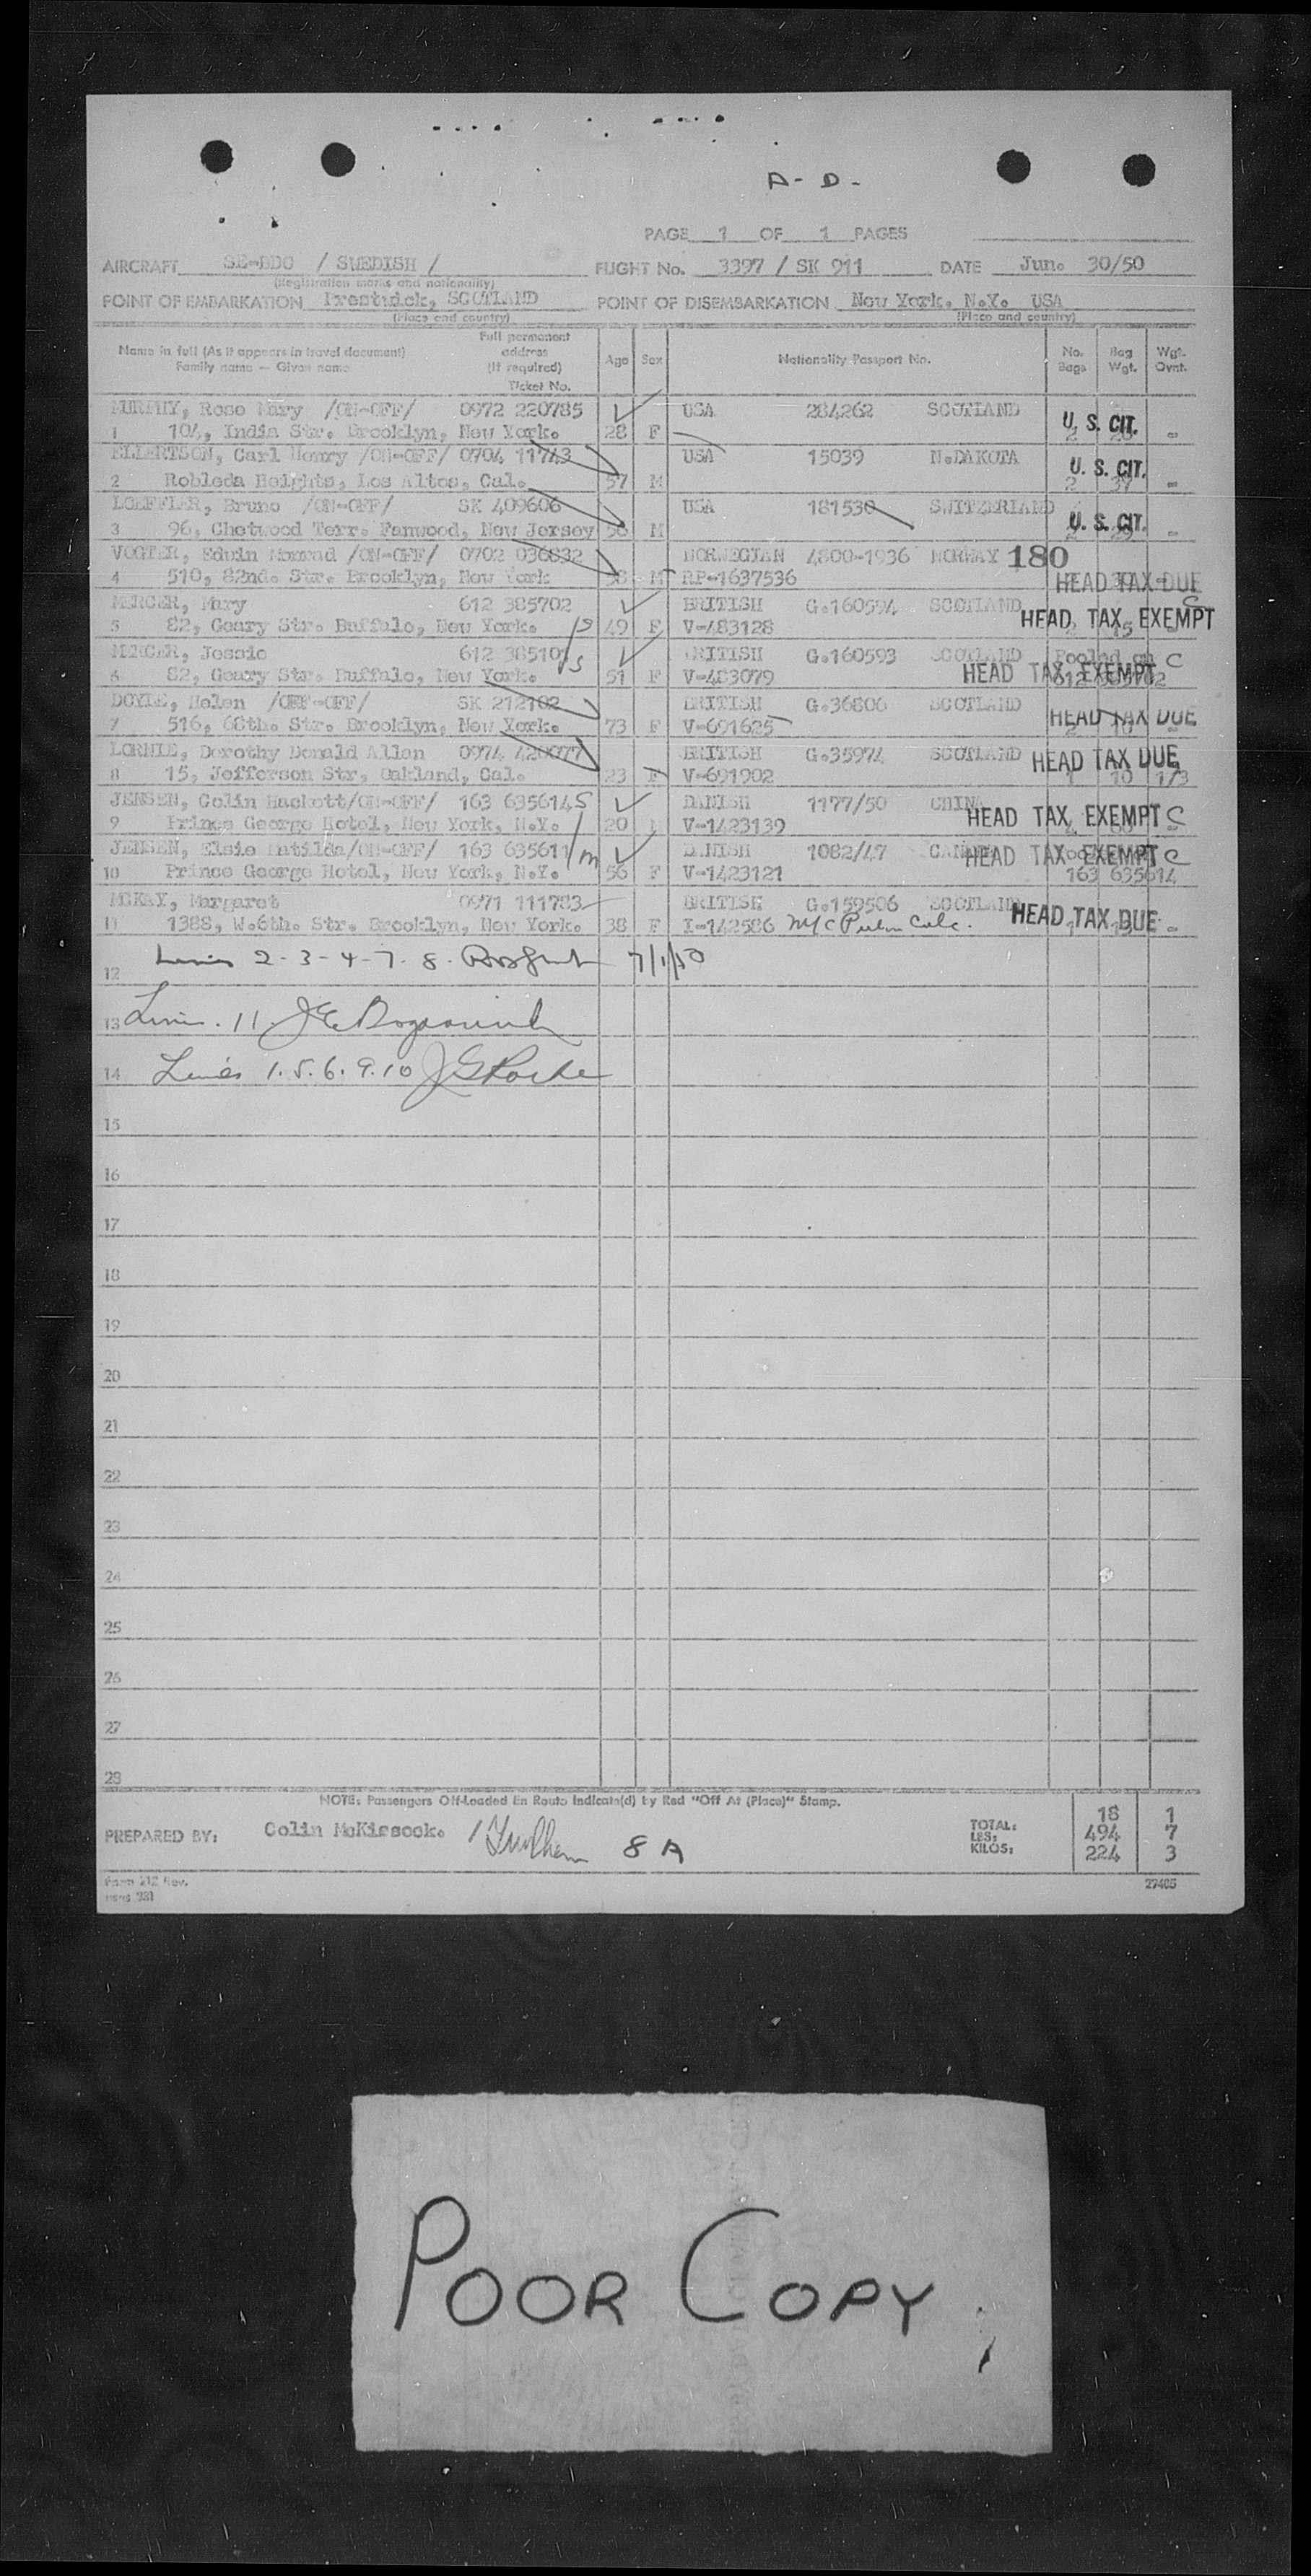 A - D -
PAGE 1 OF 1 PAGES
AIRCRAFT SE-BDO / SWEDISH / FLIGHT No. 3397 / SK 911 DATE June 30/50
(Registration marks and nationality)
POINT OF EMBARKATION Prestwick, SCOTLAND POINT OF DISEMBARKATION New York. N.Y. USA
(Place and country) (Place and country)
Name in full (As it appears in travel document) Family name — Given name Full permanent address (If required) Ticket No. Age Sex Nationality Passport No. No. Bags Bag Wgt. Wgt. Ovnt.
MURPHY, Rose Mary /ON-OFF/ 0972 220785 USA 284262 SCOTLAND U. S. CIT.
1 104, India Str. Brooklyn, New York. 28 F 2 -
ELLERTSON, Carl Henry /ON-OFF/ 0704 11743 USA 15039 N.DAKOTA U. S. CIT.
2 Robleda Heights, Los Altos, Cal. 57 M 2 37 -
LOEFFLER, Bruno /ON-OFF/ SK 409606 USA 181530 SWITZERLAND U. S. CIT.
3 96, Chetwood Terr. Fanwood, New Jersey 56 M 2 -
VOGTER, Edwin /ON-OFF/ 0702 036832 NORWEGIAN 4800-1936 NORWAY 180
4 510, 82nd. Str. Brooklyn, New York 58 M RP-1637536 HEAD TAX DUE
MERCER, Mary 612 385702 BRITISH G.160594 SCOTLAND HEAD TAX EXEMPT C
5 82, Geary Str. Buffalo, New York. /S 49 F V-483128 15
MERCER, Jessie 612 385101 BRITISH G.160593 SCOTLAND Pooled on C
6 82, Geary Str. Buffalo, New York. /S 51 F V-483079 HEAD TAX EXEMPT
DOYLE, Helen /OFF-OFF/ SK 212102 BRITISH G.36806 SCOTLAND HEAD TAX DUE
7 516, 68th. Str. Brooklyn, New York. 73 F V-691625 2 10 -
LORNIE, Dorothy Donald Allan 0974 420077 BRITISH G.35974 SCOTLAND HEAD TAX DUE
8 15, Jefferson Str, Oakland, Cal. 23 F V-691902 1 10 1/3
JENSEN, Colin Hackett/ON-OFF/ 163 635614 S DANISH 1177/50 CHINA HEAD TAX EXEMPT C
9 Prince George Hotel, New York, N.Y. / 20 V-1423139
JENSEN, Elsie Matilda/ON-OFF/ 163 635611 /m DANISH 1082/47 HEAD TAX EXEMPT C
10 Prince George Hotel, New York, N.Y. 56 F V-1423121 163 635614
MCKAY, Margaret 0971 111783 BRITISH G.159506 SCOTLAND HEAD TAX DUE
11 1388, W.6th. Str. Brooklyn, New York. 38 F I-142586 -
12 Lines 2-3-4-7-8. 7/1/50
13 Line. 11.
14 Lines 1.5.6.9.10
15
16
17
18
19
20
21
22
23
24
25
26
27
28
NOTE: Passengers Off-Loaded En Route Indicate(d) by Red "Off At (Place)" Stamp.
PREPARED BY: Colin McKissock. / 8 A
TOTAL: 18 1
LBS: 494 7
KILOS: 224 3
Form 212 Rev.
27405
POOR COPY